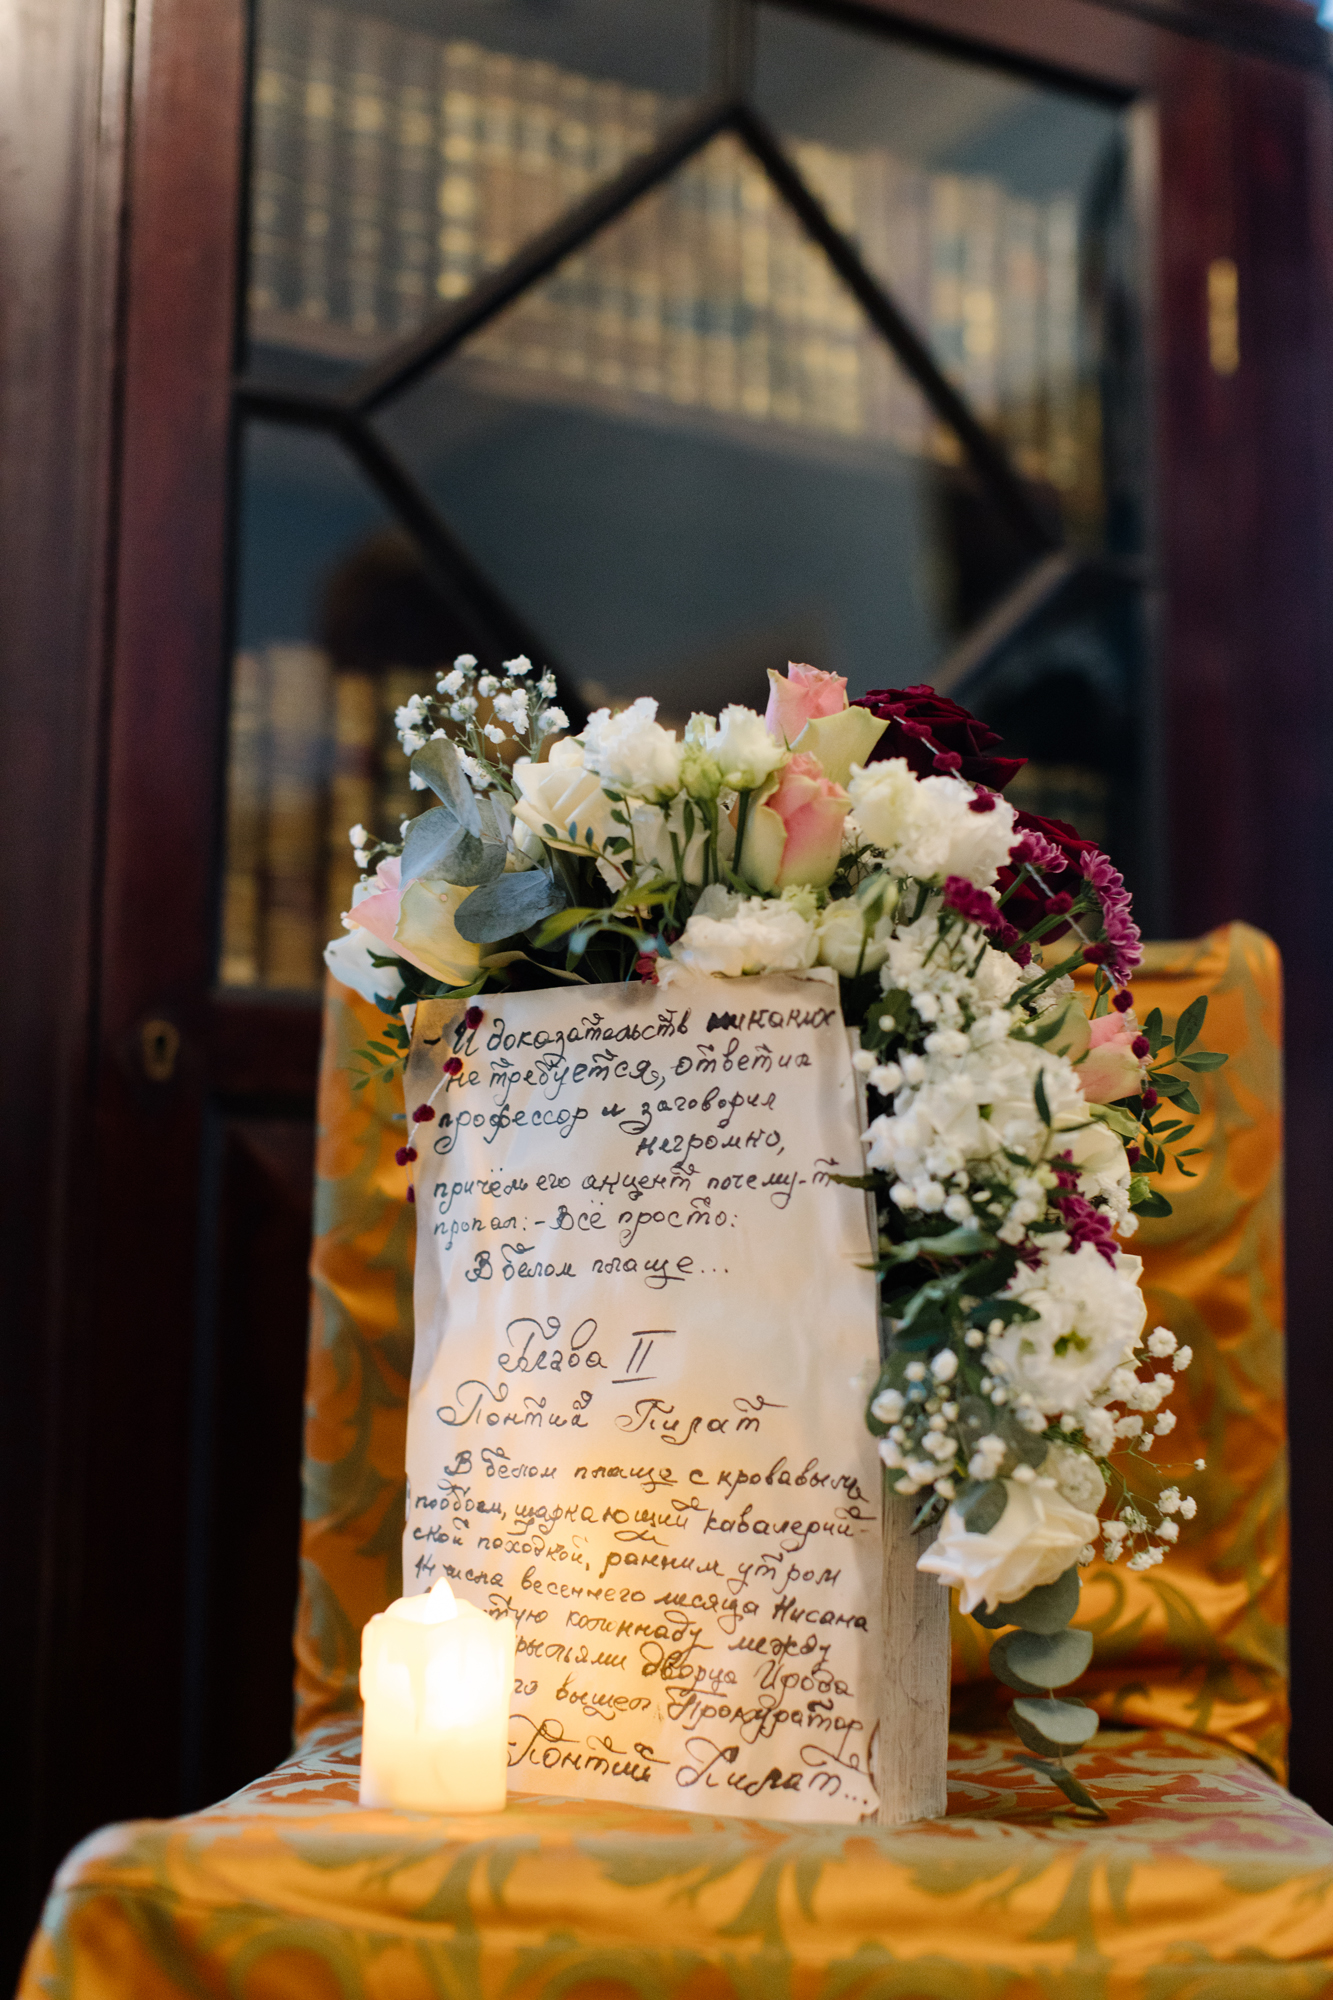 - И доказательств никаких
не требуется, ответил
профессор и заговорил
негромко,
причём его акцент почему-т
пропал: - Всё просто:
В белом плаще...
Глава II
Понтий Пилат
В белом плаще с кровавым
подбоем, шаркающий кавалерий-
ской походкой, ранним утром
14 числа весеннего месяца Нисана
тую колоннаду между
крыльями дворца Ирода
го вышел Прокуратор
Понтий Пилат...